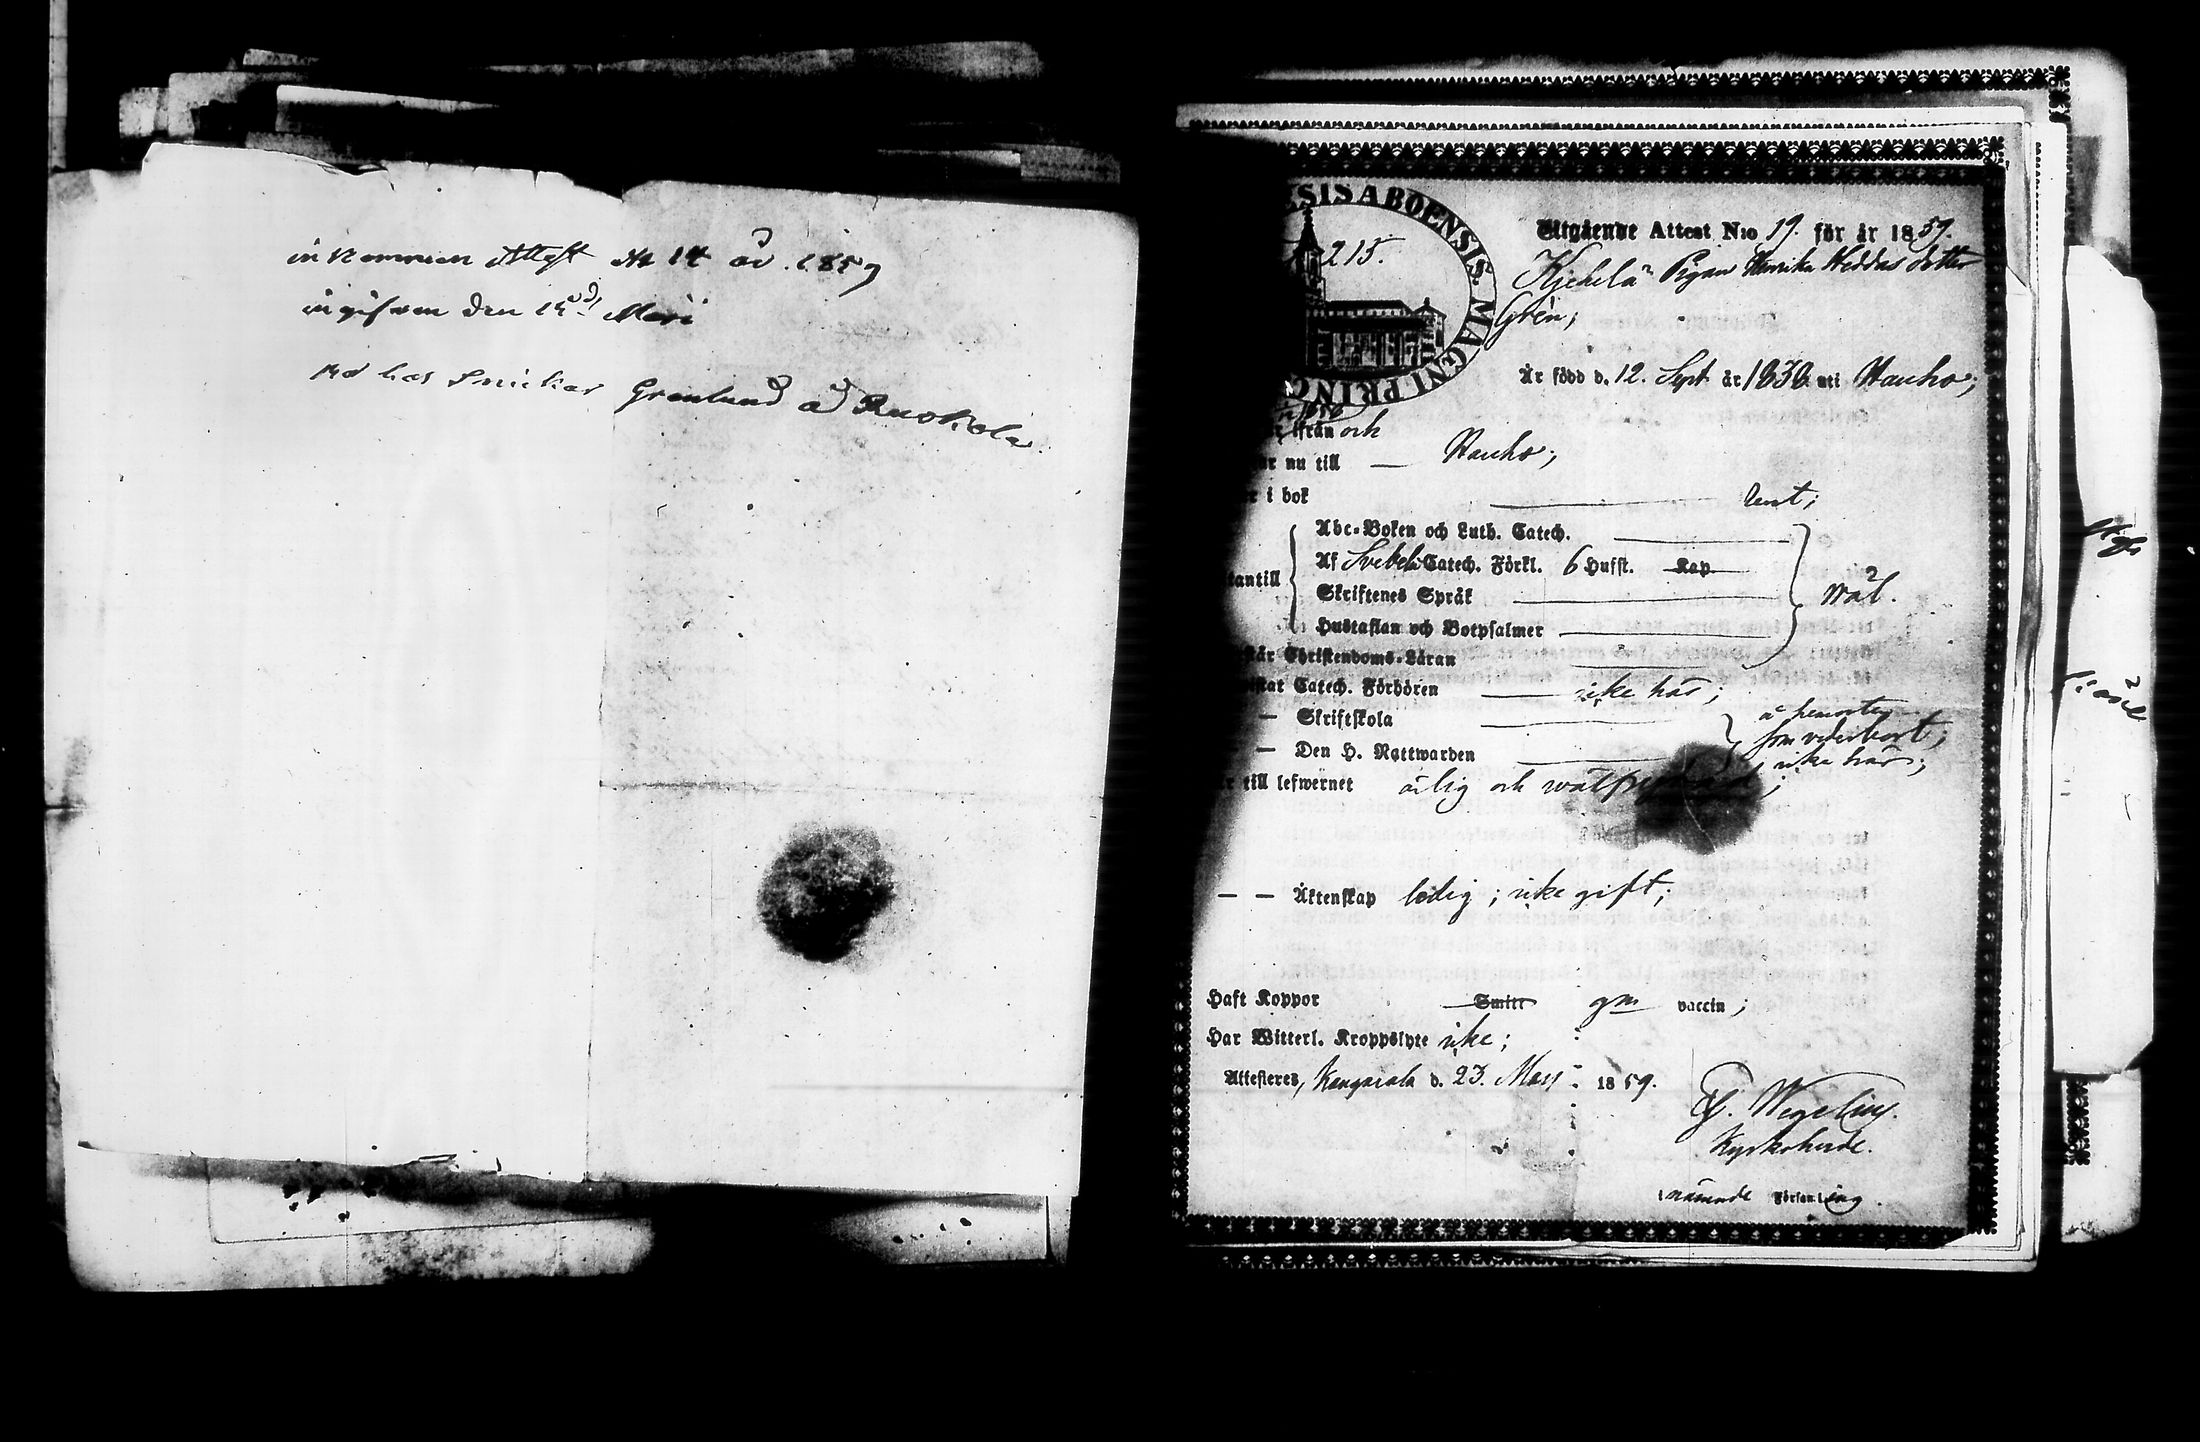 inkommen Attest No 14 år 1859
ingifven den 15 Maii
hos Snickar Grönlund å Ruokola
SIS ABOENSIS. MAGNI PRINC
215.
Utgående Attest N:o 19. för år 1859.
Kjehelä Pigan Henrika Heddas dotter
Grén;
Är född d. 12. Sept. år 1838 uti Hauho;
ifrån och
nu till — Hauho;
i bok — rent;
Abc-Boken och Luth. Catech.
Af Svebeli Catech. Förkl. 6 Hufst. Kap
antill
Skriftenes Språk
wäl.
Hustaflan och Botpsalmer
Christendoms-Läran
Catech. Förhören — icke här;
— Skriftskola
å hemorten
som vederbort;
— Den H. Nattwarden
icke här;
till lefwernet ärlig och
— — Äktenskap ledig; icke gift;
Haft Koppor Smitt gm vaccin;
Har Witterl. Kroppslyte icke;
Attesteres, Kangasala d. 23. Mars 1859.
G. Wegelius.
Kyrkoherde.
nämnde Försam ling.